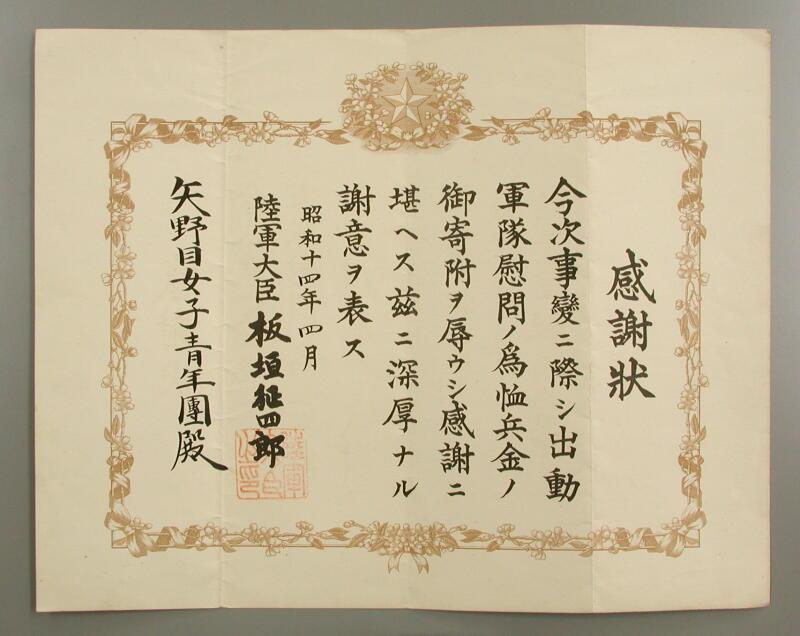 感謝狀
今次事變ニ際シ出動
軍隊慰問ノ爲恤兵金ノ
御寄附ヲ辱ウシ感謝ニ
堪ヘス茲ニ深厚ナル
謝意ヲ表ス
昭和十四年四月
陸軍大臣 板垣征四郎
矢野目女子青年團殿